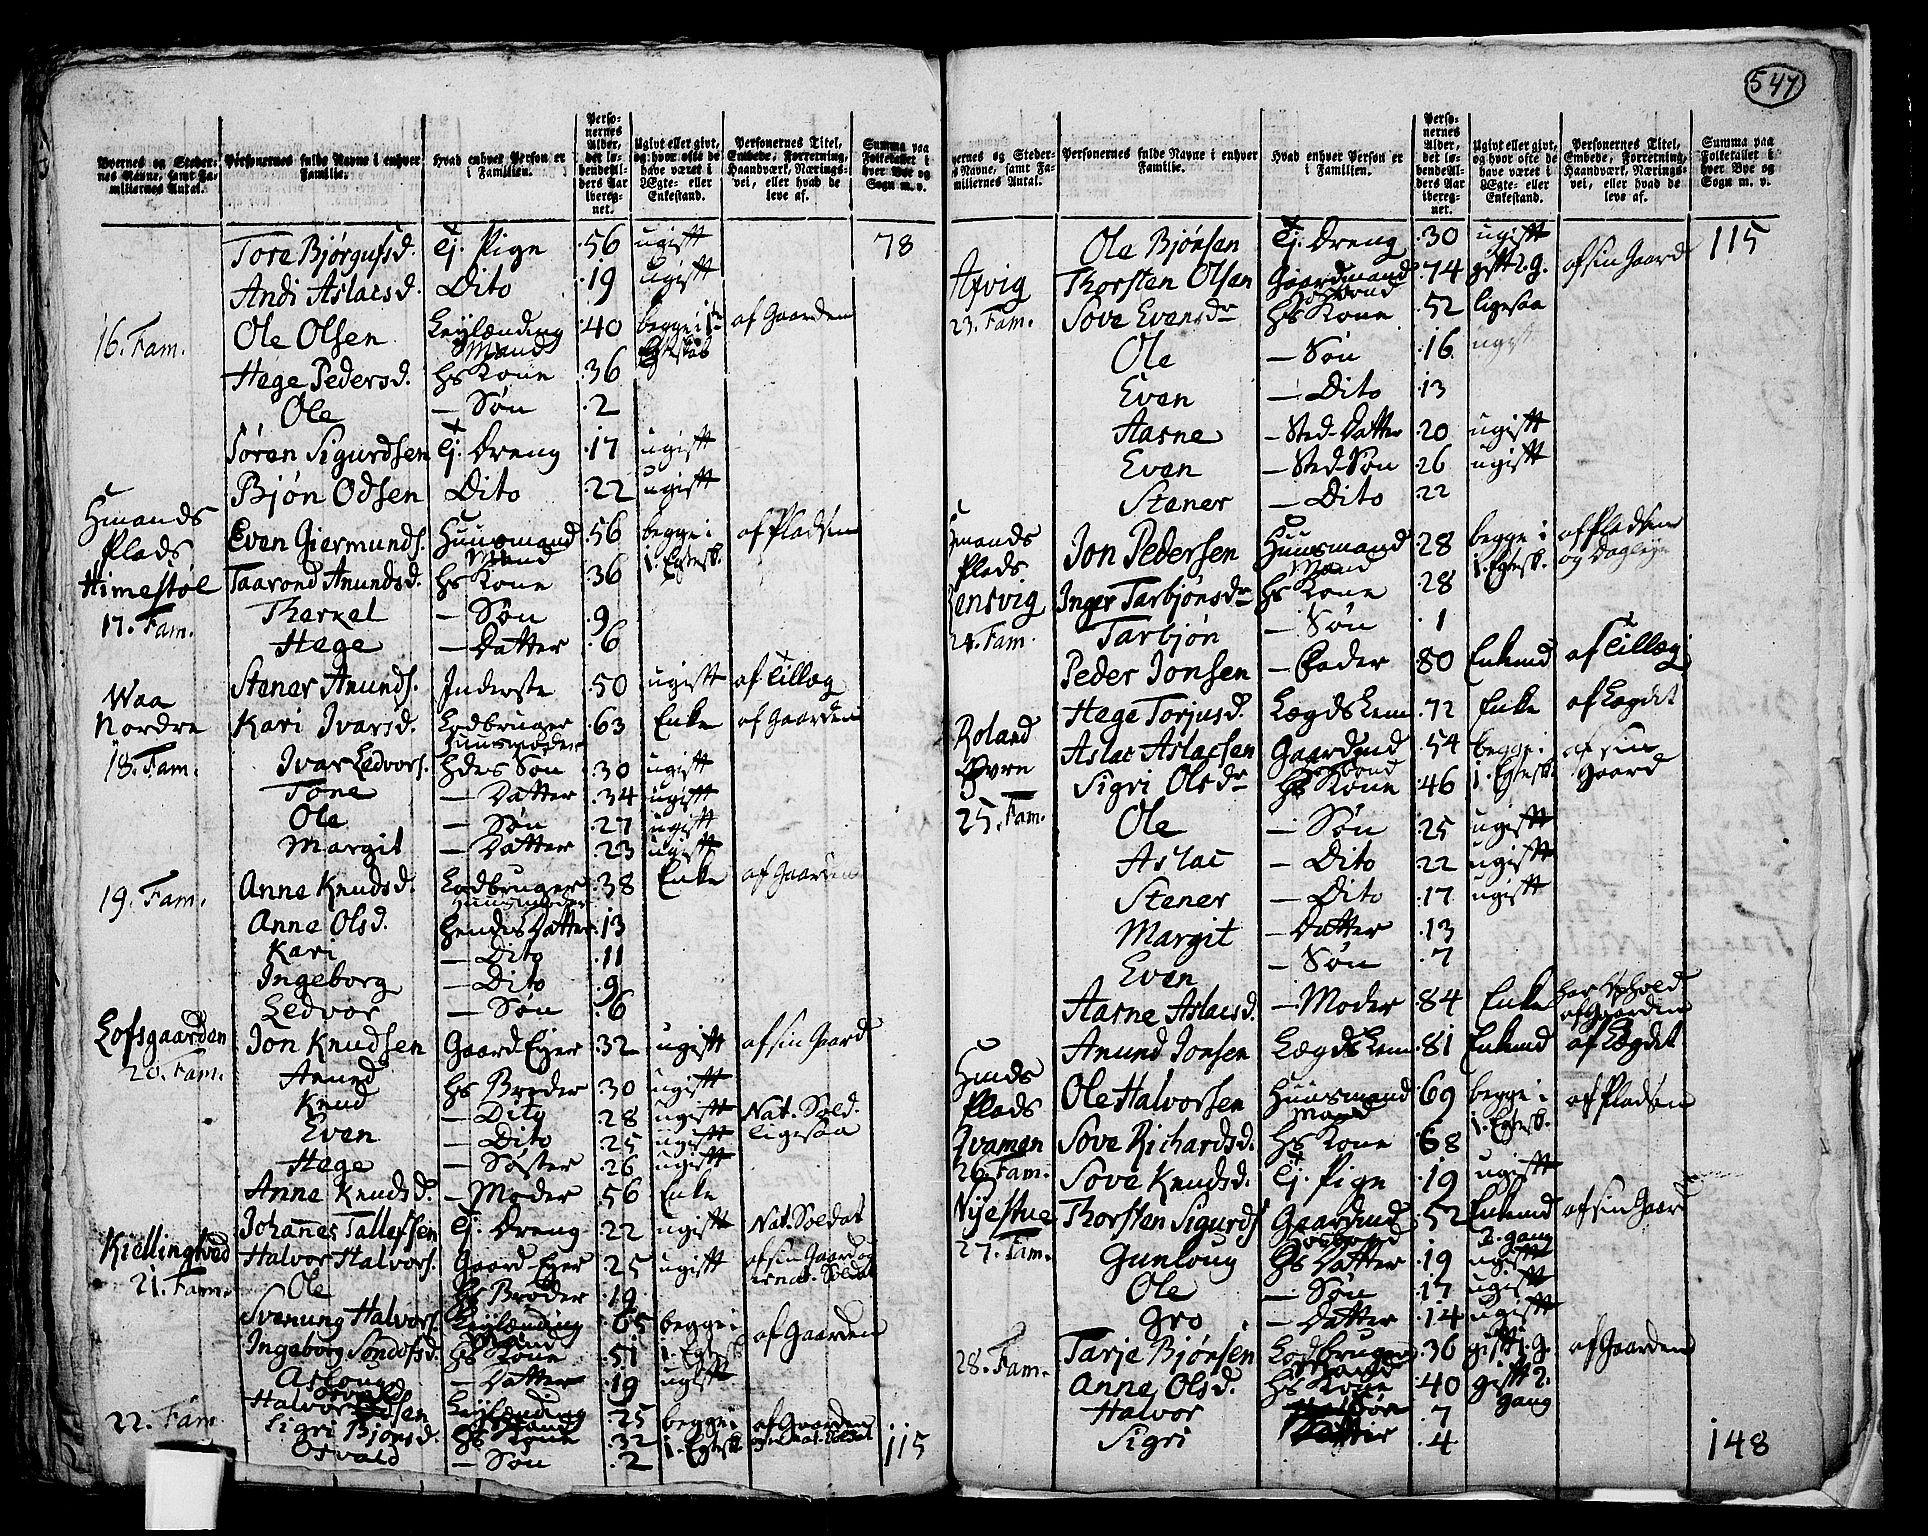 547
Byernes og Steder-
nes Navne, samt Fa-
miliernes Antal.
Personernes fulde Navne i enhver
Familie.
Hvad enhver Person er
i Familien.
Perso-
nernes
Alder,
det lø-
bende Al-
ders Aar
iberegnet.
Ugivt eller givt,
og hvor ofte de
have været i
Ægte- eller
Enkestand.
Personernes Titel,
Embede, Forretning,
Haandværk, Nærings-
vei, eller hvad de
leve af.
Summa paa
Folketallet i
hver Bye og
Sogn m. v.
Tore Bjørgufsd. Tj. Pige 56 ugift 78
Andi Aslacsd. Dito 19 ugift
16. Fam. Ole Olsen Leylænding Mand 40 begge i 1te af Gaarden
Hege Pedersd. Hs Kone 36
Ole — Søn 2
Søren Sigurdsen Tj. Dreng 17 ugift
Bjøn Odsen Dito 22 ugift
Hmands Plads Even Giermunds. Huusmand Mand 56 begge i 1. Egtesk. af Pladsen
Himestøl Taarond Anundsd. Hs Kone 36
17. Fam. Therkel — Søn 9
Hege — Datter 6
Stener Anunds. Inderste 50 ugift af Tillæg
Waa Nordre Kari Ivarsd. Lodbruger Huusmoder 63 Enke af Gaarden
18. Fam. Ivar Ledvors. Hdes Søn 30 ugift
Tone — Datter 34 ugift
Ole — Søn 27 ugift
Margit — Datter 23 ugift
19. Fam. Anne Knudsd. Lodbruger Huusmoder 38 Enke af Gaarden
Anne Olsd. Hendes Datter 13
Kari — Dito 11
Ingeborg — Dito 9
Ledvor — Søn 6
Lofsgaarden Jon Knudsen Gaard Ejer 32 ugift af sin Gaard
20. Fam. Anund Hs Broder 30 ugift
Knud — Dito 28 ugift Nat. Sold.
Even — Dito 25 ugift ligesaa
Hege — Søster 26 ugift
Anne Knudsd. — Moder 56 Enke
Johannes Tallefsen Tj. Dreng 22 ugift Nat. Soldat
Kiellingtved Halvor Halvors. Gaard Ejer 25 ugift af sin Gaard og er nat. Soldat
21. Fam. Ole Hs Broder 19
Svenung Halvors. Leylænding Mand 65 begge i af Gaarden
Ingeborg Sondofsd. Hs Kone 51 1. Egtesk.
Asloug — Datter 19 ugift
22. Fam. Halvor Leylænding Mand 25 begge i af Gaarden
Sigri Bjønsd. Hs Kone 32 1. Egtesk.
Osvald — Søn 2 115
yernes og Steder-
nes Navne, samt Fa-
miliernes Antal.
Personernes fulde Navne i enhver
Familie.
Hvad enhver Person er
i Familien.
Perso-
nernes
Alder,
det lø-
bende Al-
ders Aar
iberegnet.
Ugivt eller givt,
og hvor ofte de
have været i
Ægte- eller
Enkestand.
Personernes Titel,
Embede, Forretning,
Haandværk, Nærings-
vei, eller hvad de
leve af.
Summa paa
Folketallet i
hver Bye og
Sogn m. v.
Ole Bjønsen Tj. Dreng 30 ugift 115
Afvig Thorsten Olsen Gaardmand Hosbond 74 gift 2. G. af sin Gaard
23. Fam. Sove Evensdr Hs Kone 52 ligesaa
Ole — Søn 16 ugift
Even — Dito 13
Aasne — Sted-Datter 20 ugift
Even — Sted-Søn 26 ugift
Stener — Dito 22
Hmands Plads Jon Pedersen Huusmand Mand 28 begge i 1. Egtesk. af Pladsen og Dagleje
Inger Tarbjønsdr Hs Kone 28
24. Fam. Tarbjøn — Søn 1
Peder Jonsen — Fader 80 Enkmd af Tillæg
Hege Torjusd. Lægdslem 72 Enke af Lægdet
Roland Øvre Aslac Aslacsen Gaardmd Hosbond 54 begge i 1. Egtesk. af sin Gaard
Sigri Olsdr Hs Kone 46
25. Fam. Ole — Søn 25 ugift
Aslac — Dito 22 ugift
Stener — Dito 17 ugift
Margit — Datter 13
Even — Søn 7
Aasne Aslacsd. — Moder 84 Enke har Ophold af Gaarden
Anund Jonsen Lægdslem 81 Enkmd af Lægdet
Hmds Plads Ole Halvorsen Huusmand Mand 69 begge i 1. Egtesk. af Pladsen
Qvamen Sove Richardsd. Hs Kone 68
26. Fam. Sove Knudsd. Tj. Pige 19 ugift
Nyestue Thorsten Sigurds Gaardmd Hosbond 52 Enkemd 2. gang af sin Gaard
27. Fam. Gunloug Hs Datter 19 ugift
Ole — Søn 17 ugift
Gro — Datter 14 ugift
28. Fam. Tarje Bjønsen Lodbruger Mand 36 gift 1. G. af Gaarden
Anne Olsd. Hs Kone 40 gift 2. Gang
Halvor Søn 7
Sigri Datter 4 148